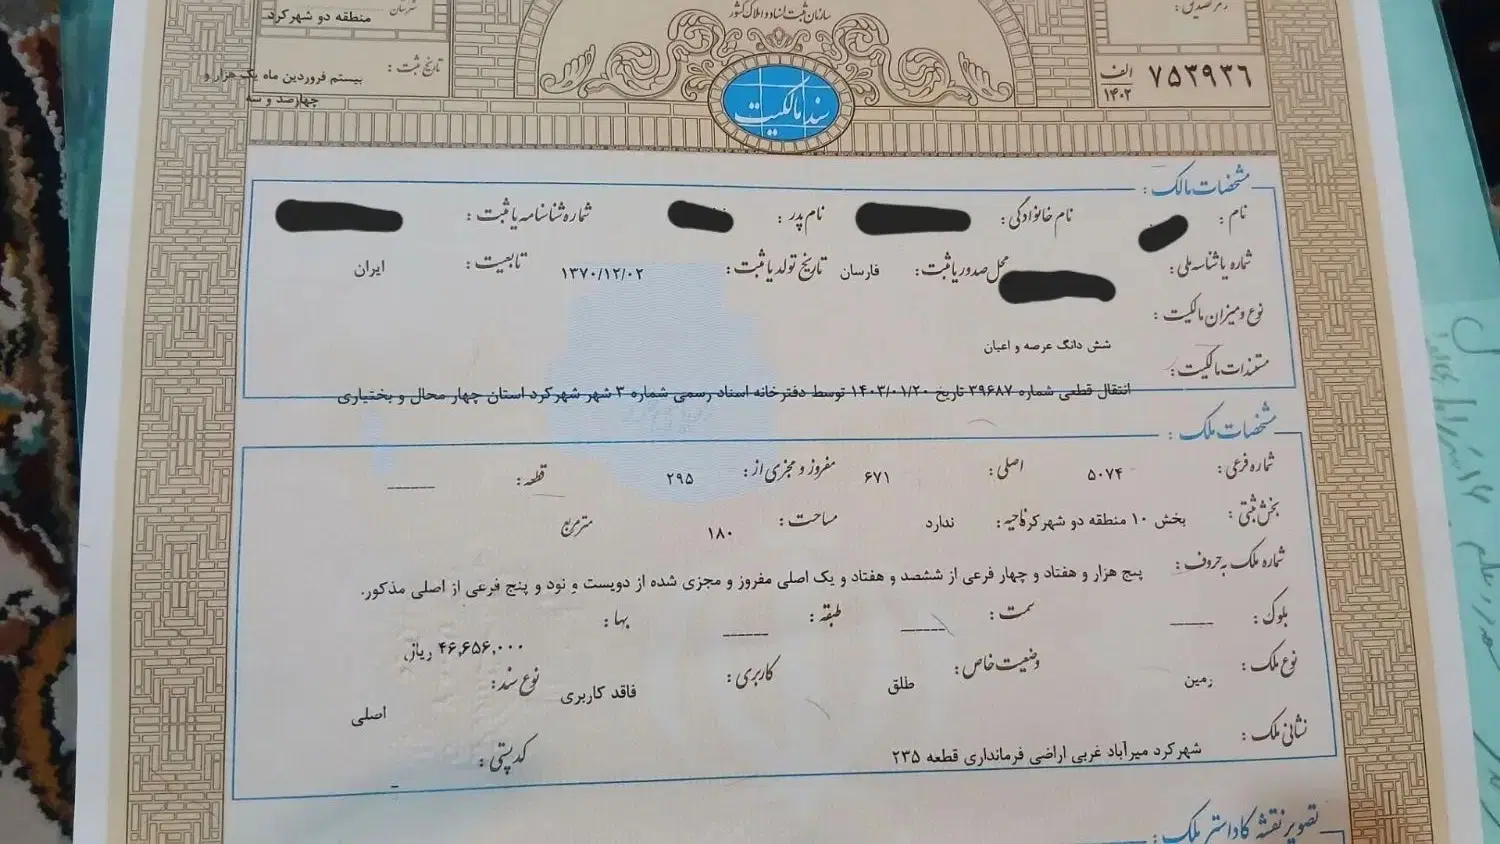 سازمان ثبت اسناد و املاک کشور
رمز تصدیق :
شهرستان
منطقه دو شهرکرد.
تاریخ ثبت :
بیستم فروردین ماه یک هزار و
چهارصد و سه
۷۵۳۹۳۶ الف
۱۴۰۲
سند مالکیت
مشخصات مالک :
نام : نام خانوادگی : نام پدر : شماره شناسنامه یا ثبت :
شماره یا شناسه ملی : محل صدور یا ثبت : فارسان تاریخ تولد یا ثبت : ۱۳۷۰/۱۲/۰۲ تابعیت : ایران
نوع و میزان مالکیت :
شش دانگ عرصه و اعیان
مستندات مالکیت :
انتقال قطعی شماره ۳۹۶۸۷ تاریخ ۱۴۰۳/۰۱/۲۰ توسط دفترخانه اسناد رسمی شماره ۳ شهر شهرکرد استان چهار محال و بختیاری
مشخصات ملک :
شماره فرعی : ۵۰۷۴ اصلی : ۶۷۱ مفروز و مجزی از : ۲۹۵ قطعه : ------
بخش ثبتی : بخش ۱۰ منطقه دو شهرکرد ناحیه : ندارد مساحت : ۱۸۰ مترمربع
شماره ملک به حروف : پنج هزار و هفتاد و چهار فرعی از ششصد و هفتاد و یک اصلی مفروز و مجزی شده از دویست و نود و پنج فرعی از اصلی مذکور.
بلوک : ------ سمت : ------ طبقه : ------ بها : ۴۶,۶۵۶,۰۰۰ ریال
نوع ملک : زمین وضعیت خاص : طلق کاربری : فاقد کاربری نوع سند : اصلی
نشانی ملک : شهرکرد میرآباد غربی اراضی فرمانداری قطعه ۲۳۵ کد پستی : -
تصویر نقشه کاداستر ملک :